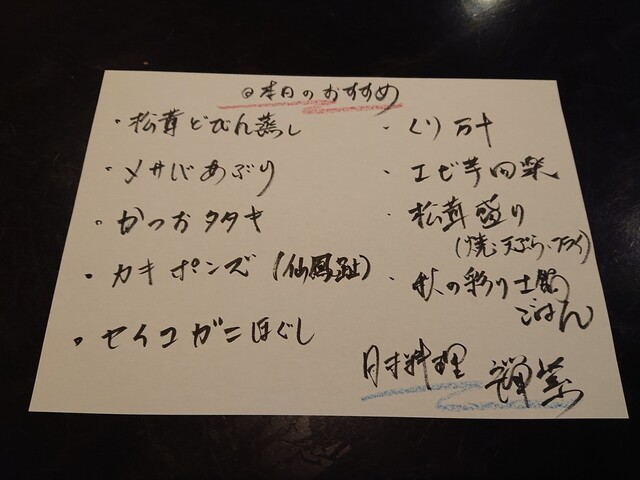 ◎本日のおすすめ
・松茸どびん蒸し
・メサバあぶり
・かつおタタキ
・カキポンズ(仙鳳趾)
・セイコガニほぐし
・くり万十
・エビ芋田楽
・松茸盛り
(焼・天ぷら・フライ)
・秋の彩り土鍋
ごはん
料理